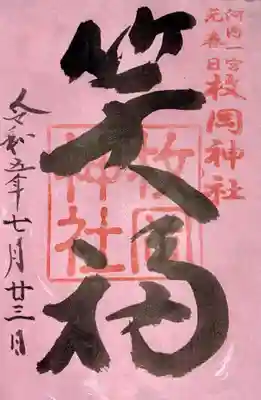 河内一宮
元春日
枚岡神社
笑福
枚岡神社
令和五年七月廿三日